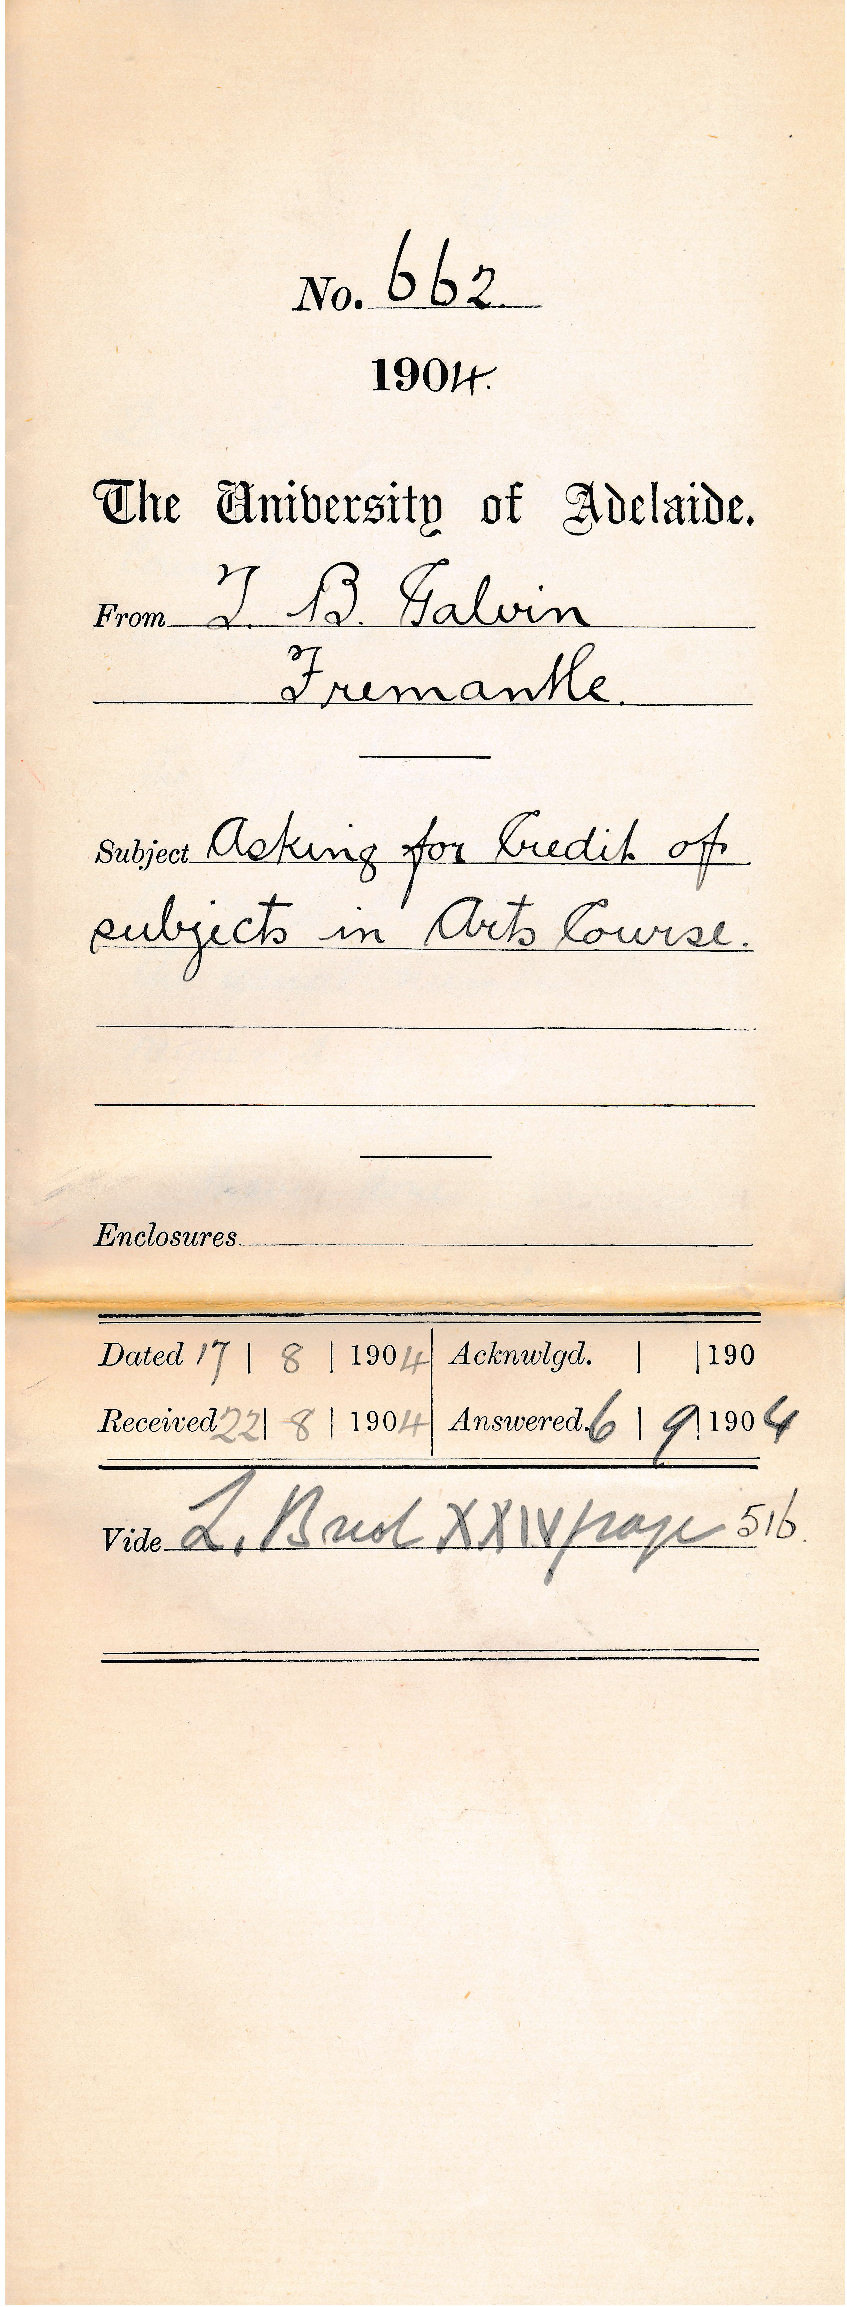 No. 662
1904.
The University of Adelaide.
From T. B. Galvin
Fremantle.
Subject Asking for Credit of
subjects in Arts Course.
Enclosures
Dated 17 | 8 | 1904 Acknwlgd. | | 190
Received 22 | 8 | 1904 Answered 6 | 9 | 1904
Vide L. XXIV page 516.